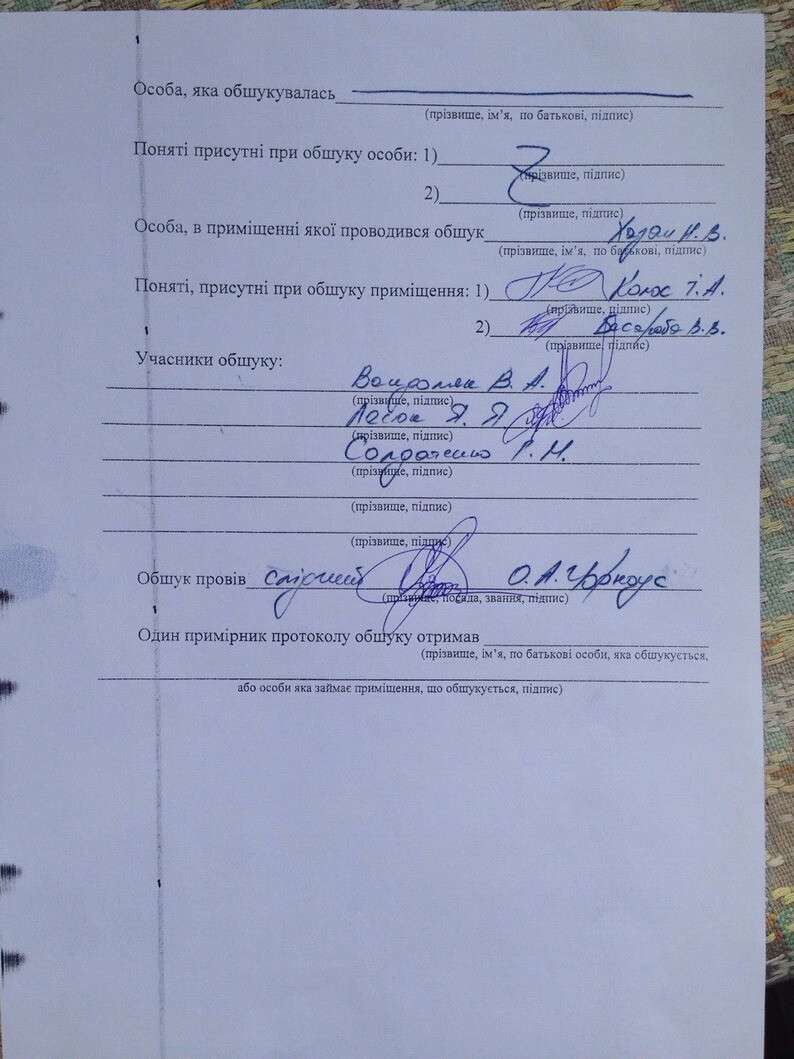 Особа, яка обшукувалась
(прізвище, ім’я, по батькові, підпис)
Поняті присутні при обшуку особи: 1)
(прізвище, підпис)
2)
(прізвище, підпис)
Особа, в приміщенні якої проводився обшук Хазан Н. В.
(прізвище, ім’я, по батькові, підпис)
Поняті, присутні при обшуку приміщення: 1) Колос І. А.
(прізвище, підпис)
2) Басараба В. В.
(прізвище, підпис)
Учасники обшуку:
В. А.
(прізвище, підпис)
Я. Я.
(прізвище, підпис)
Солдатенко Г. М.
(прізвище, підпис)
(прізвище, підпис)
(прізвище, підпис)
Обшук провів слідчий О. А. Чорноус
(прізвище, посада, звання, підпис)
Один примірник протоколу обшуку отримав
(прізвище, ім’я, по батькові особи, яка обшукується,
або особи яка займає приміщення, що обшукується, підпис)